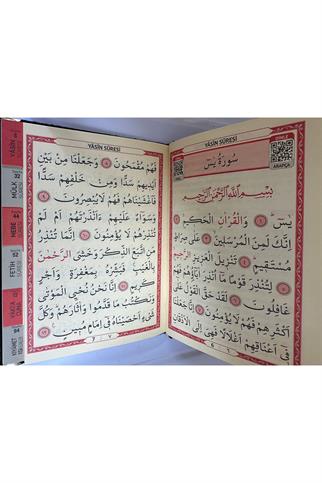 YÂSİN SÛRESİ
DİNLE
ARAPÇA
سُورَةُ يٰسٓ
بِسْمِ اللّٰهِ الرَّحْمٰنِ الرَّحِيمِ
يٰسٓ ﴿١﴾ وَالْقُرْاٰنِ الْحَكِيمِ ﴿٢﴾
اِنَّكَ لَمِنَ الْمُرْسَلِينَ ﴿٣﴾ عَلٰى صِرَاطٍ
مُسْتَقِيمٍ ﴿٤﴾ تَنْزِيلَ الْعَزِيزِ الرَّحِيمِ
﴿٥﴾ لِتُنْذِرَ قَوْمًا مَٓا اُنْذِرَ اٰبَٓاؤُهُمْ فَهُمْ
غَافِلُونَ ﴿٦﴾ لَقَدْ حَقَّ الْقَوْلُ عَلٰٓى
اَكْثَرِهِمْ فَهُمْ لَا يُؤْمِنُونَ ﴿٧﴾ اِنَّا جَعَلْنَا
فِٓي اَعْنَاقِهِمْ اَغْلَالًا فَهِيَ اِلَى الْاَذْقَانِ
6 ٦
YÂSİN SÛRESİ
فَهُمْ مُقْمَحُونَ ﴿٨﴾ وَجَعَلْنَا مِنْ بَيْنِ
اَيْدِيهِمْ سَدًّا وَمِنْ خَلْفِهِمْ سَدًّا
فَاَغْشَيْنَاهُمْ فَهُمْ لَا يُبْصِرُونَ ﴿٩﴾
وَسَوَٓاءٌ عَلَيْهِمْ ءَاَنْذَرْتَهُمْ اَمْ لَمْ
تُنْذِرْهُمْ لَا يُؤْمِنُونَ ﴿١٠﴾ اِنَّمَا تُنْذِرُ
مَنِ اتَّبَعَ الذِّكْرَ وَخَشِيَ الرَّحْمٰنَ
بِالْغَيْبِ فَبَشِّرْهُ بِمَغْفِرَةٍ وَاَجْرٍ
كَرِيمٍ ﴿١١﴾ اِنَّا نَحْنُ نُحْيِ الْمَوْتٰى
وَنَكْتُبُ مَا قَدَّمُوا وَاٰثَارَهُمْ وَكُلَّ
شَيْءٍ اَحْصَيْنَاهُ فِٓي اِمَامٍ مُبِينٍ ﴿١٢﴾
7 ٧
YÂSİN
MÜLK 32
NEBE 44
FETİH
VAKIA
CUMA
KIYÂMET